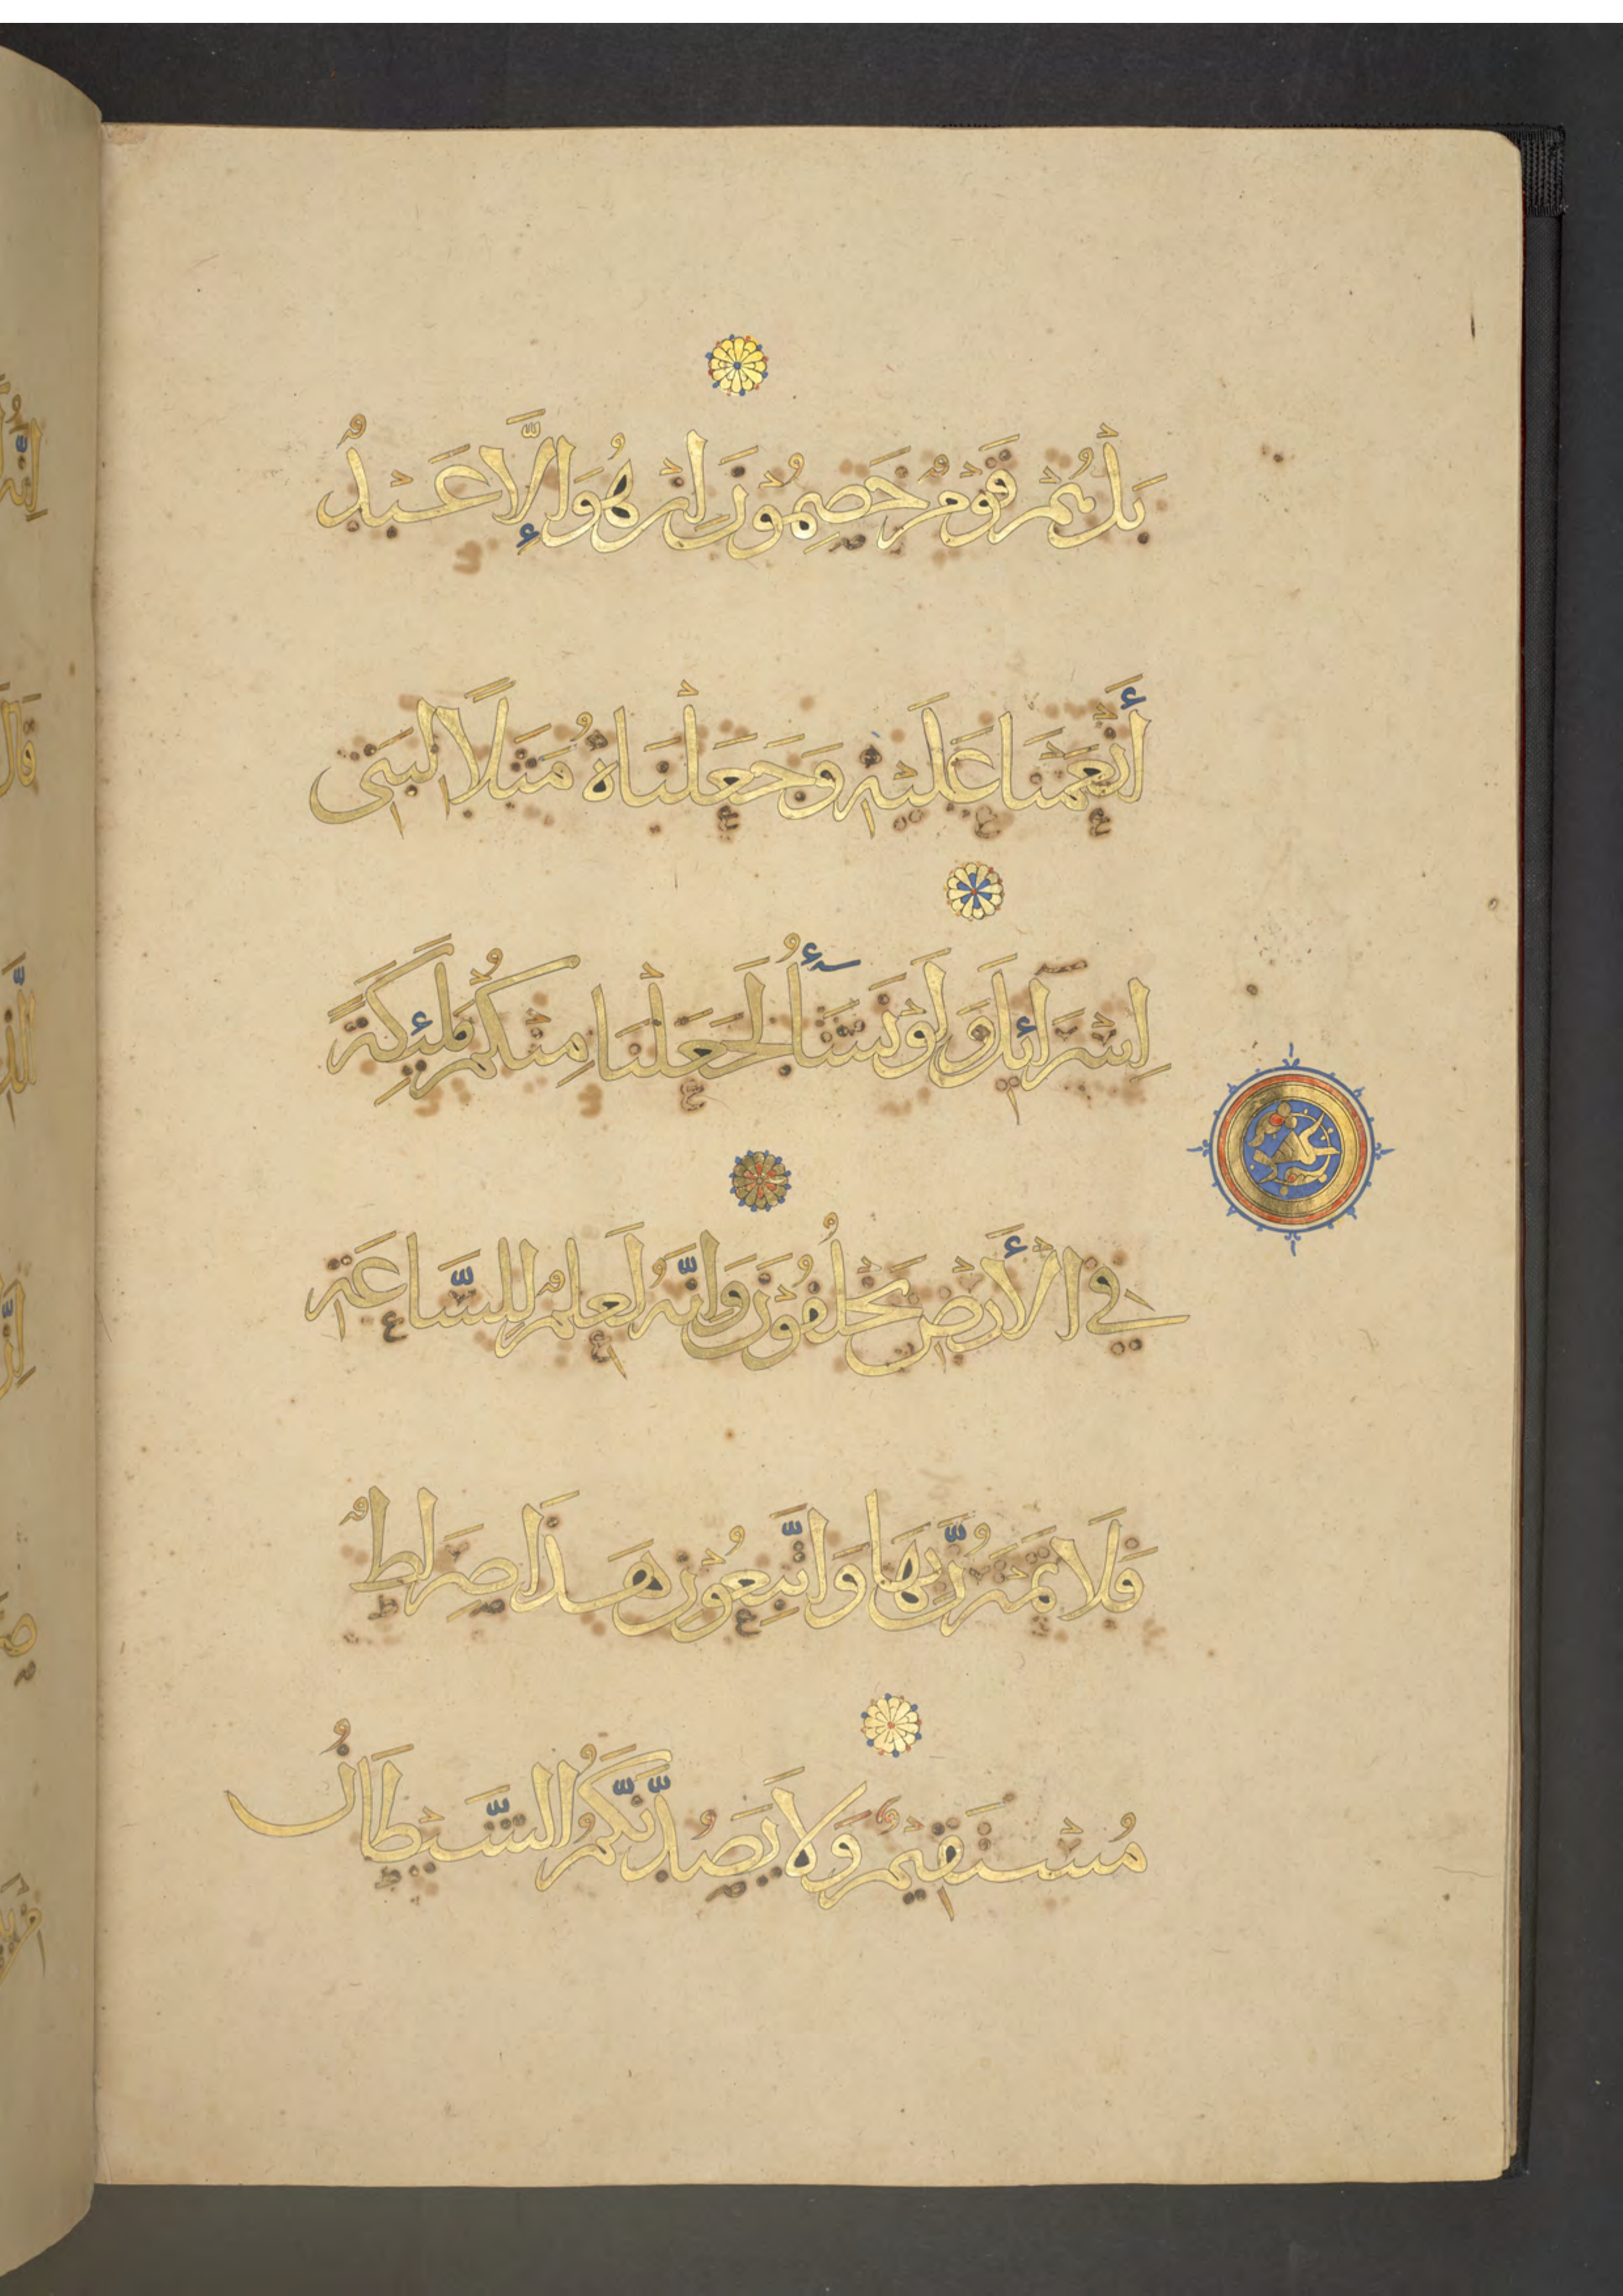 بَلْ هُمْ قَوْمٌ خَصِمُونَ اِنْ هُوَ اِلَّا عَبْدٌ
أَنْعَمْنَا عَلَيْهِ وَجَعَلْنَاهُ مَثَلًا لِبَنِي
اِسْرَآئِلَ وَلَوْ نَشَآءُ لَجَعَلْنَا مِنْكُمْ مَلٰئِكَةً
فِي الْأَرْضِ يَخْلُفُونَ وَاِنَّهُ لَعِلْمٌ لِلسَّاعَةِ
فَلَا تَمْتَرُنَّ بِهَا وَاتَّبِعُونِ هَذَا صِرَاطٌ
مُسْتَقِيمٌ وَلَا يَصُدَّنَّكُمُ الشَّيْطَانُ